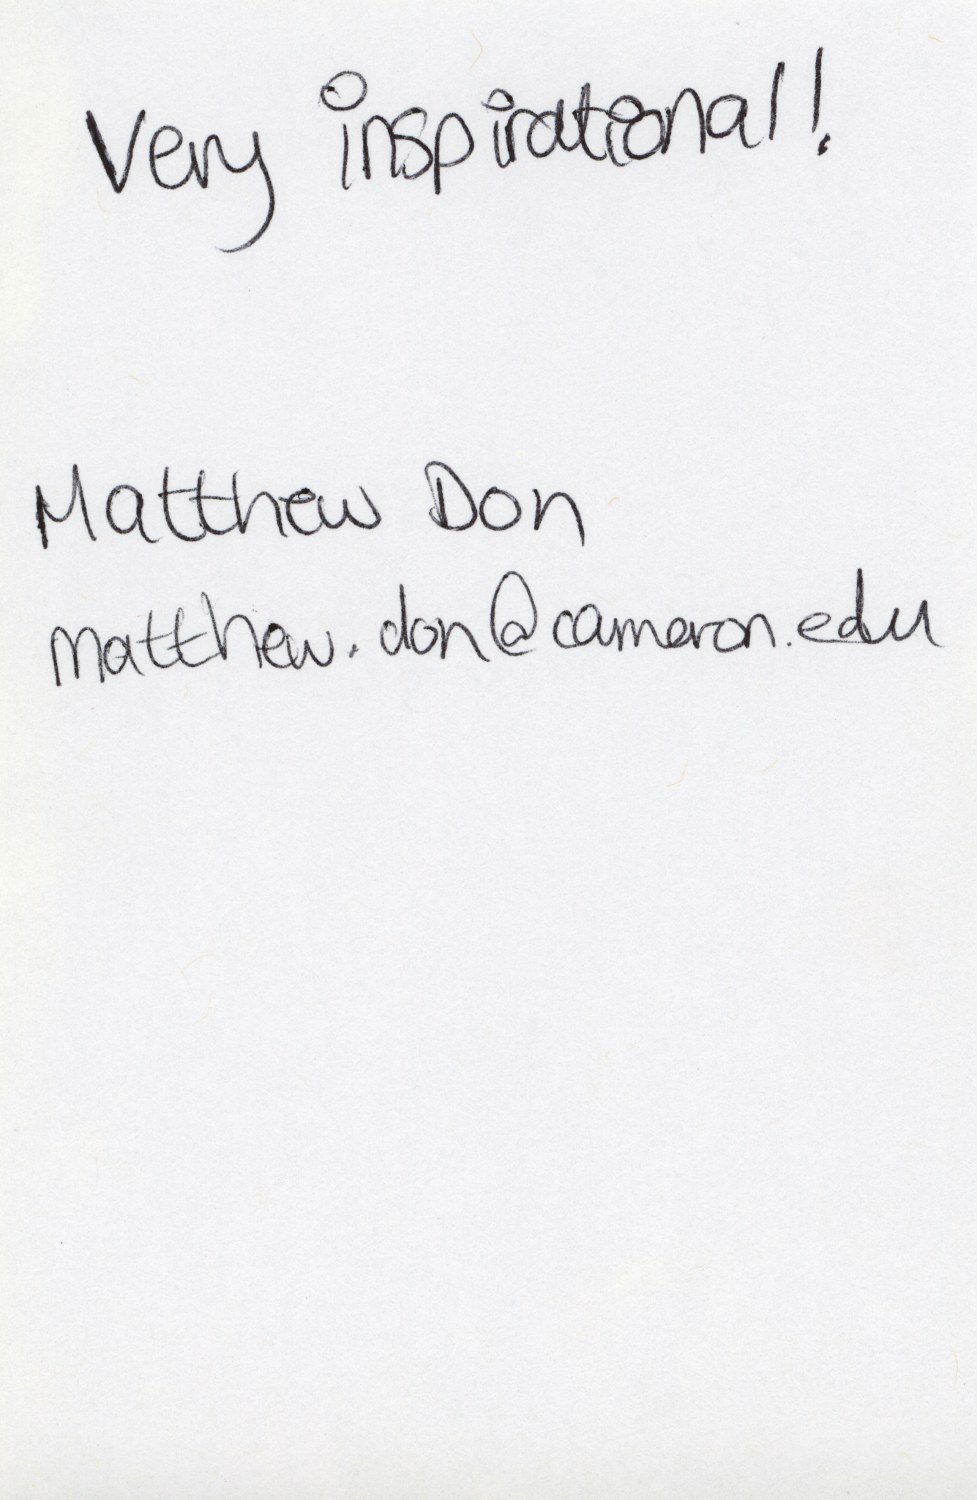 Very inspirational!
Matthew Don
matthew.don@cameron.edu